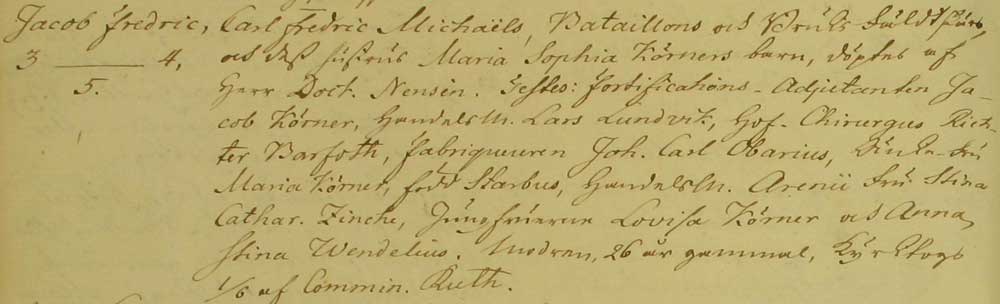 Jacob Fredric, Carl Fredric Michaëls, Bataillons och Bruks Fältskärs,
3 ——— 4. och dess hustrus Maria Sophia Körners barn, döptes af
5. Herr Doct. Nensén. Testes: Fortifications-Adjutanten Ja-
cob Körner, Handelsm. Lars Lundvik, Hof-Chirurgus Rich-
ter Barfoth, Fabriqueuren Joh. Carl Obarius, Enke-Fru
Maria Körner, född Starbus, Handelsm. Arenii Fru Stina
Cathar. Zincke, Jungfruerna Lovisa Körner och Anna
Stina Wendelius. Modren, 26 år gammal, Kyrktogs
1/6 af Commin. Ruth.